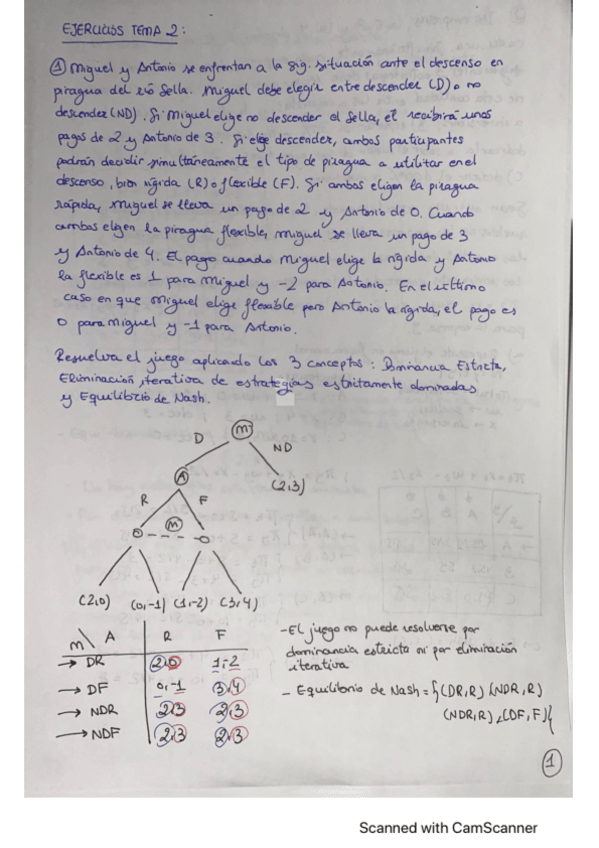 EJERCICIOS TEMA 2:
① Miguel y Antonio se enfrentan a la sig. situación ante el descenso en
piragua del río Sella. Miguel debe elegir entre descender (D) o no
descender (ND). Si Miguel elige no descender el Sella, él recibirá unos
pagos de 2 y Antonio de 3. Si elige descender, ambos participantes
podrán decidir simultáneamente el tipo de piragua a utilizar en el
descenso, bien rígida (R) o flexible (F). Si ambos eligen la piragua
rápida, Miguel se lleva un pago de 2 y Antonio de 0. Cuando
ambas eligen la piragua flexible, Miguel se lleva un pago de 3
y Antonio de 4. El pago cuando Miguel elige la rígida y Antonio
la flexible es 1 para Miguel y -2 para Antonio. En el último
caso en que Miguel elige flexible pero Antonio la rígida, el pago es
0 para Miguel y -1 para Antonio.
Resuelva el juego aplicando los 3 conceptos: Dominancia Estricta,
Eliminación iterativa de estrategias estrictamente dominadas
y Equilibrio de Nash.
M
D
ND
A
(2,3)
R
F
M
(2,0) (0,-1) (1,-2) (3,4)
M \ A R F
→ DR 2,0 1,-2
→ DF 0,-1 3,4
→ NDR 2,3 2,3
→ NDF 2,3 2,3
- El juego no puede resolverse por
dominancia estricta ni por eliminación
iterativa
- Equilibrio de Nash = {(DR,R) (NDR,R)
(NDR,R), (DF,F)}
1
Scanned with CamScanner